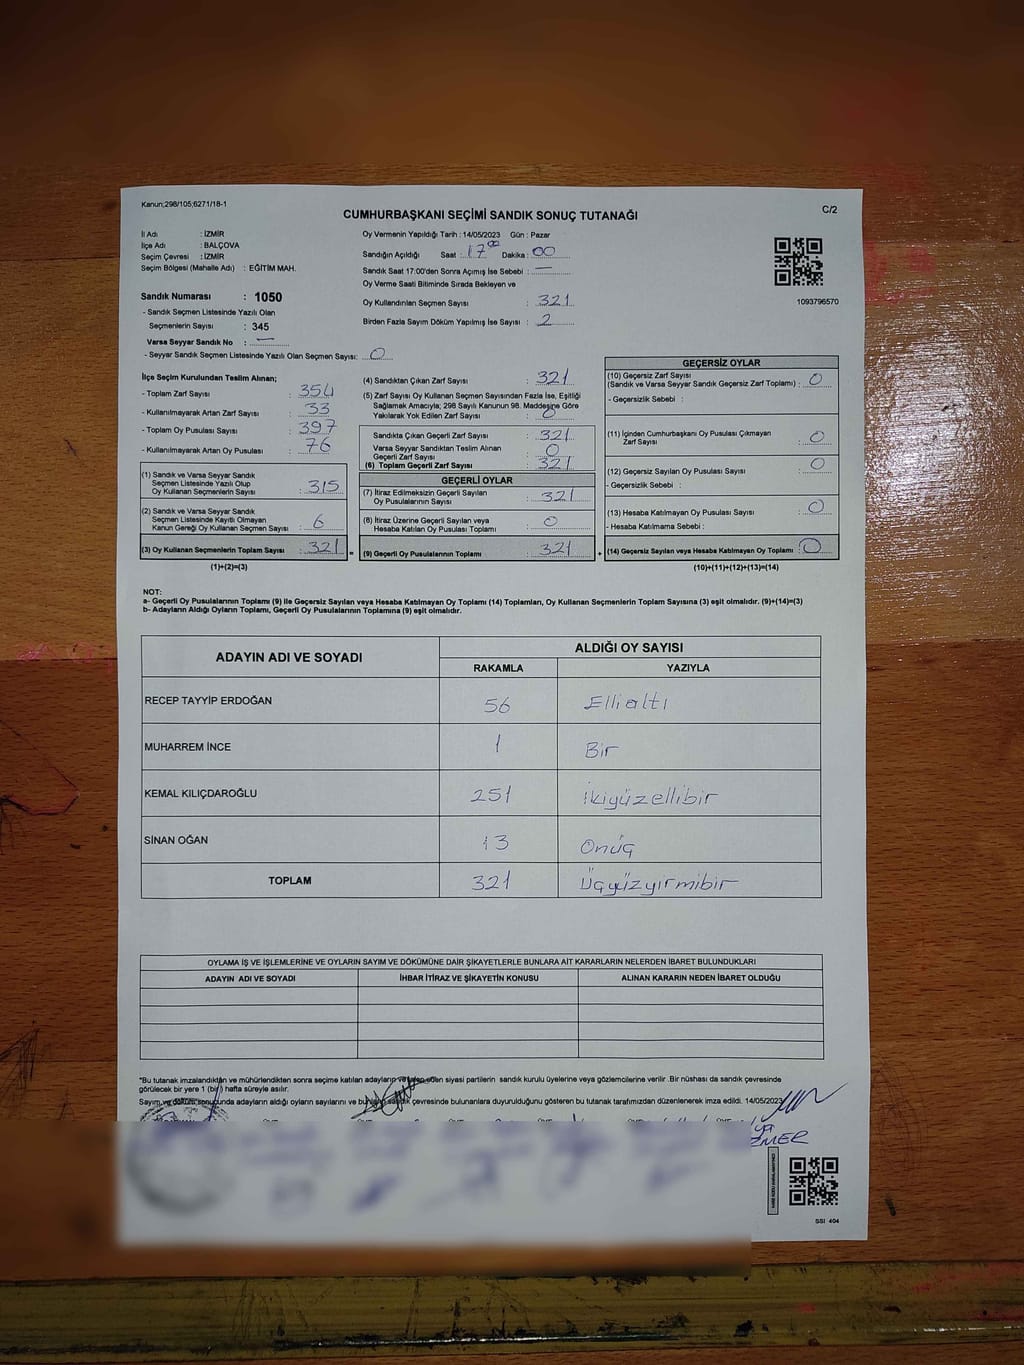 Kanun;298/105;6271/18-1
C/2
CUMHURBAŞKANI SEÇİMİ SANDIK SONUÇ TUTANAĞI
İl Adı : İZMİR
İlçe Adı : BALÇOVA
Seçim Çevresi : İZMİR
Seçim Bölgesi (Mahalle Adı) : EĞİTİM MAH.
Sandık Numarası : 1050
- Sandık Seçmen Listesinde Yazılı Olan
Seçmenlerin Sayısı : 345
Varsa Seyyar Sandık No : —
- Seyyar Sandık Seçmen Listesinde Yazılı Olan Seçmen Sayısı: 0
Oy Vermenin Yapıldığı Tarih : 14/05/2023 Gün : Pazar
Sandığın Açıldığı Saat : 17⁰⁰ Dakika : 00
Sandık Saat 17:00'den Sonra Açımış İse Sebebi : —
Oy Verme Saati Bitiminde Sırada Bekleyen ve
Oy Kullandırılan Seçmen Sayısı : 321
Birden Fazla Sayım Döküm Yapılmış İse Sayısı : 2
1093796570
İlçe Seçim Kurulundan Teslim Alınan;
- Toplam Zarf Sayısı : 354
- Kullanılmayarak Artan Zarf Sayısı : 33
- Toplam Oy Pusulası Sayısı : 397
- Kullanılmayarak Artan Oy Pusulası : 76
(1) Sandık ve Varsa Seyyar Sandık
Seçmen Listesinde Yazılı Olup
Oy Kullanan Seçmenlerin Sayısı : 315
(2) Sandık ve Varsa Seyyar Sandık
Seçmen Listesinde Kayıtlı Olmayan
Kanun Gereği Oy Kullanan Seçmen Sayısı : 6
(3) Oy Kullanan Seçmenlerin Toplam Sayısı : 321 =
(1)+(2)=(3)
(4) Sandıktan Çıkan Zarf Sayısı : 321
(5) Zarf Sayısı Oy Kullanan Seçmen Sayısından Fazla İse, Eşitliği
Sağlamak Amacıyla; 298 Sayılı Kanunun 98. Maddesine Göre
Yakılarak Yok Edilen Zarf Sayısı : 0
Sandıkta Çıkan Geçerli Zarf Sayısı : 321
Varsa Seyyar Sandıktan Teslim Alınan
Geçerli Zarf Sayısı : 0
(6) Toplam Geçerli Zarf Sayısı : 321
GEÇERLİ OYLAR
(7) İtiraz Edilmeksizin Geçerli Sayılan
Oy Pusulalarının Sayısı : 321
(8) İtiraz Üzerine Geçerli Sayılan veya
Hesaba Katılan Oy Pusulası Toplamı : 0
(9) Geçerli Oy Pusulalarının Toplamı : 321 +
GEÇERSİZ OYLAR
(10) Geçersiz Zarf Sayısı
(Sandık ve Varsa Seyyar Sandık Geçersiz Zarf Toplamı) : 0
- Geçersizlik Sebebi :
(11) İçinden Cumhurbaşkanı Oy Pusulası Çıkmayan
Zarf Sayısı : 0
(12) Geçersiz Sayılan Oy Pusulası Sayısı : 0
- Geçersizlik Sebebi :
(13) Hesaba Katılmayan Oy Pusulası Sayısı : 0
- Hesaba Katılmama Sebebi :
(14) Geçersiz Sayılan veya Hesaba Katılmayan Oy Toplamı : 0
(10)+(11)+(12)+(13)=(14)
NOT:
a- Geçerli Oy Pusulalarının Toplamı (9) ile Geçersiz Sayılan veya Hesaba Katılmayan Oy Toplamı (14) Toplamları, Oy Kullanan Seçmenlerin Toplam Sayısına (3) eşit olmalıdır. (9)+(14)=(3)
b- Adayların Aldığı Oyların Toplamı, Geçerli Oy Pusulalarının Toplamına (9) eşit olmalıdır.
ADAYIN ADI VE SOYADI
ALDIĞI OY SAYISI
RAKAMLA YAZIYLA
RECEP TAYYİP ERDOĞAN 56 Ellialtı
MUHARREM İNCE 1 Bir
KEMAL KILIÇDAROĞLU 251 İkiyüzellibir
SİNAN OĞAN 13 Onüç
TOPLAM 321 Üçyüzyirmibir
OYLAMA İŞ VE İŞLEMLERİNE VE OYLARIN SAYIM VE DÖKÜMÜNE DAİR ŞİKAYETLERLE BUNLARA AİT KARARLARIN NELERDEN İBARET BULUNDUKLARI
ADAYIN ADI VE SOYADI İHBAR İTİRAZ VE ŞİKAYETİN KONUSU ALINAN KARARIN NEDEN İBARET OLDUĞU
*Bu tutanak imzalandıktan ve mühürlendikten sonra seçime katılan adayların ve talep eden siyasi partilerin sandık kurulu üyelerine veya gözlemcilerine verilir .Bir nüshası da sandık çevresinde
görülecek bir yere 1 (bir) hafta süreyle asılır.
Sayım ve döküm sonucunda adayların aldığı oyların sayılarını ve bunların sandık çevresinde bulunanlara duyurulduğunu gösteren bu tutanak tarafımızdan düzenlenerek imza edildi. 14/05/2023
SSI 404